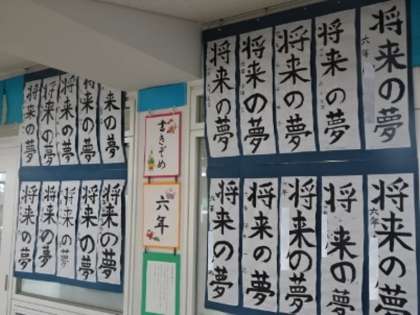 将来の夢
六年
将来の夢
将来の夢
将来の夢
将来の夢
将来の夢
六年
将来の夢
将来の夢
将来の夢
将来の夢
書きぞめ
六年
将来の夢
将来の夢
将来の夢
将来の夢
将来の夢
将来の夢
将来の夢
将来の夢
将来の夢
将来の夢